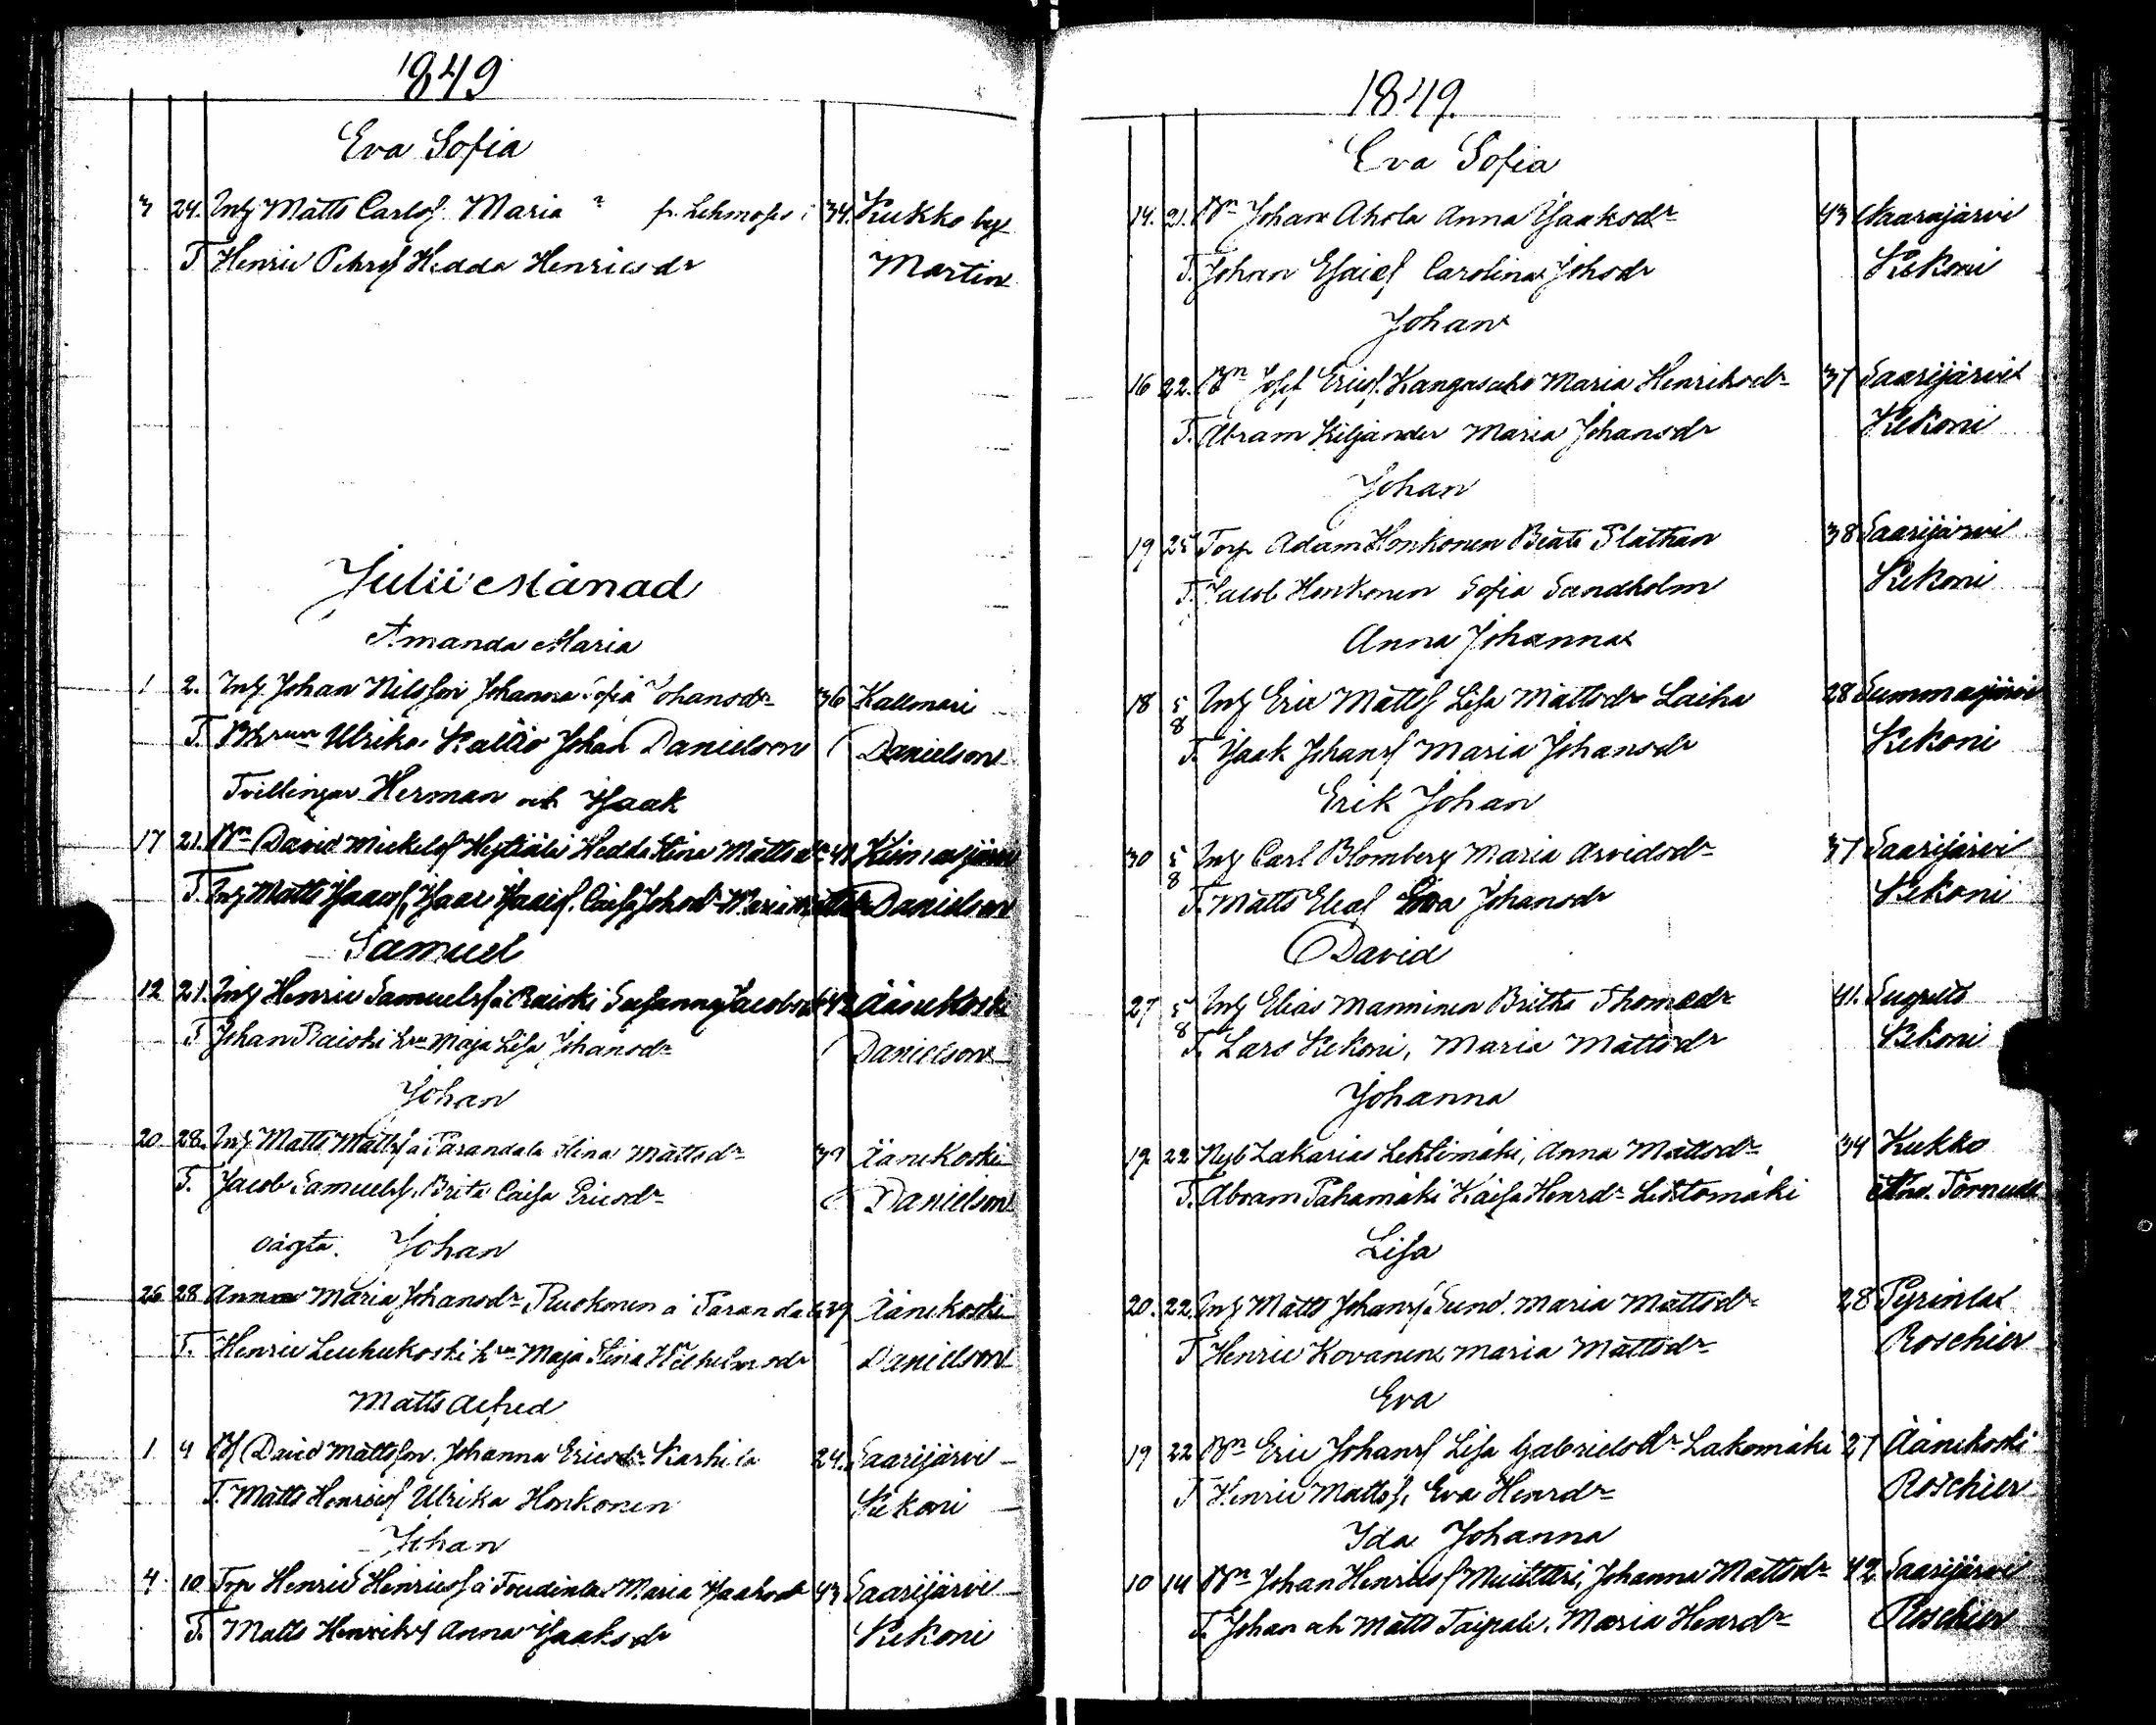 1849
Eva Sofia
3 24. Inh Matts Carlsf. Maria ? fr. 34. Kukko by
T Henric Petrsf Hedda Henricsdr Martin
Julii Månad
Amanda Maria
1 2. Inh Johan Nilsson Johanna Sofia Johansdr 36 Kallmari
T. Ulrika Kallio Johan Danielson Danielson
Tvillingar Herman och Isaak
17 21. Bn David Mickelsf Hedda Stina Mattsdr 41
T. Inh Matts Isaacsf, Isaac Isaacsf. Caisa Johsdr Maria Danielson
Samuel
12 21. Inh Henric Samuelsf à Raiski Susanna Jacobsdr 42 Äänekoski
T Johan Raiski hu Maja Lisa Johansdr Danielson
Johan
20 28. Inh Matts Mattsf à Parandala Stina Mattsdr 39 Äänekoski
T. Jacob Samuelsf. Brita Caisa Ericsdr Danielson
oägta. Johan
26 28 Anna Maria Johansdr Ruokonen à Parandala 39 Äänekoski
T. Henric Leuhukoski hu Maja Stina Wilhelmsdr Danielson
Matts Alfred
1 4 David Mattsson. Johanna Ericsdr Karhila 24. Saarijärvi
T. Matts Henricsf Ulrika Honkonen Kekoni
Johan
4 10 Torp Henric Henricsf à Maria Isaksdr 43 Saarijärvi
T. Matts Henriksf Anna Isaaksdr Kekoni
1849.
Eva Sofia
14. 21. Bn Johan Ahola Anna Isaaksdr 43 Saarajärvi
T. Johan Esaiæsf Carolina Johsdr Kekoni
Johan
16 22. Bn Josef Ericsf. Kangasaho Maria Henriksdr 37 Saarijärvi
T. Abram Kiljander Maria Johansdr Kekoni
Johan
19 25 Torp Adam Honkonen Beata Plathan 38 Saarijärvi
T. Jacob Honkonen Sofia Sandholm Kekoni
Anna Johanna
18 5/8 Inh Eric Mattsf Lisa Mattsdr Laiha 28 Summasjärvi
T. Isaak Johansf Maria Johansdr Kekoni
Erik Johan
30 5/8 Inh Carl Blomberg Maria Arvidsdr 37 Saarijärvi
T. Matts Eliasf Eva Johansdr Kekoni
David
27 5/8 Inh Elias Manninen Britha Thomsdr 41.
T. Lars Kekoni, Maria Mattsdr Kekoni
Johanna
19. 22 Nyb Zakarias Lehtimäki, Anna Mattsdr 34 Kukko
T. Abram Pahamäki Kaisa Henrdr Lehtomäki And. Törnudd
Lisa
20. 22. Inh Matts Johansf Sund. Maria Mattsdr 28 Pyrinlax
T Henric Kovanen Maria Mattsdr Roschier
Eva
19 22 Bn Eric Johansf Lisa Gabrielsdr Lakomäki 27 Äänekoski
T Henric Mattsf, Eva Henrdr Roschier
Ida Johanna
10 14 Bn Johan Henricsf Muittari, Johanna Mattsdr 42 Saarijärvi
T. Johan och Matts Taipale. Maria Henrdr Roschier